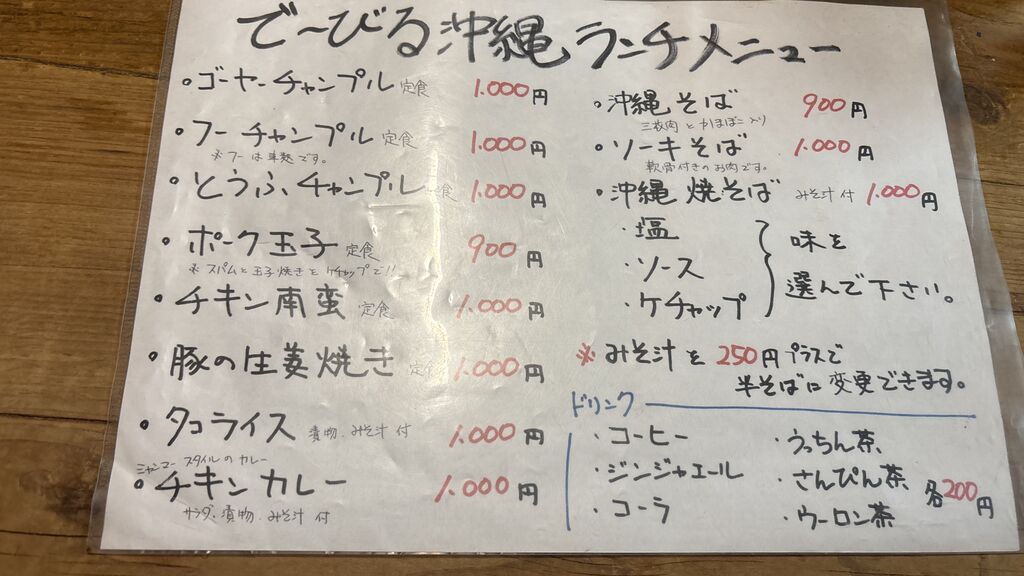 で〜びる沖縄 ランチメニュー
・ゴーヤーチャンプル 定食 1.000円
・フーチャンプル 定食 1.000円
※フーは車麩です。
・とうふチャンプル 食 1.000円
・ポーク玉子 定食 900円
※スパムと玉子焼きとケチャップで!!
・チキン南蛮 定食 1.000円
・豚の生姜焼き 定食 1.000円
・タコライス 漬物、みそ汁 付 1.000円
ミャンマースタイルのカレー
・チキンカレー 1.000円
サラダ、漬物、みそ汁 付
・沖縄そば 900円
三枚肉とかまぼこ入り
・ソーキそば 1.000円
軟骨付きのお肉です。
・沖縄焼そば みそ汁 付 1.000円
・塩
・ソース
・ケチャップ
味を
選んで下さい。
※みそ汁を250円プラスで
半そばに変更できます。
ドリンク
・コーヒー
・ジンジャエール
・コーラ
・うっちん茶
・さんぴん茶
・ウーロン茶
各200円